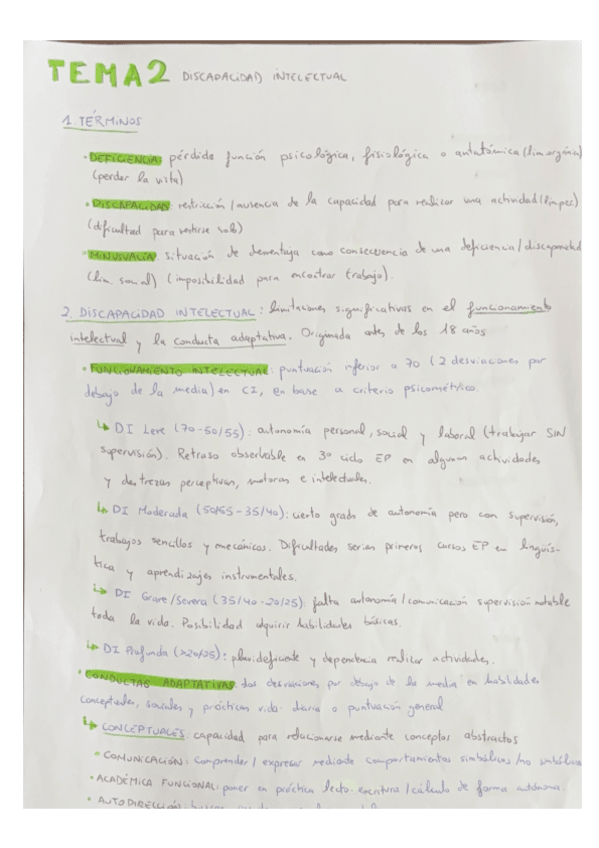 TEMA 2 DISCAPACIDAD INTELECTUAL
1. TÉRMINOS
· DEFICIENCIA: pérdida función psicológica, fisiológica o anatómica (lim orgánica)
(perder la vista)
· DISCAPACIDAD: restricción / ausencia de la capacidad para realizar una actividad (lim pers)
(dificultad para vestirse solo)
· MINUSVALÍA: situación de desventaja como consecuencia de una deficiencia / discapacidad
(lim. social) (imposibilidad para encontrar trabajo).
2. DISCAPACIDAD INTELECTUAL: limitaciones significativas en el funcionamiento
intelectual y la conducta adaptativa. Originada antes de los 18 años
· FUNCIONAMIENTO INTELECTUAL: puntuación inferior a 70 (2 desviaciones por
debajo de la media) en CI, en base a criterio psicométrico.
↳ DI Leve (70-50/55): autonomía personal, social y laboral (trabajar SIN
supervisión). Retraso observable en 3º ciclo EP en algunas actividades
y destrezas perceptivas, motoras e intelectuales.
↳ DI Moderada (50/55-35/40): cierto grado de autonomía pero con supervisión,
trabajos sencillos y mecánicos. Dificultades serias primeros cursos EP en lingüís-
tica y aprendizajes instrumentales.
↳ DI Grave/Severa (35/40-20/25): falta autonomía / comunicación supervisión notable
toda la vida. Posibilidad adquirir habilidades básicas.
↳ DI Profunda (>20/25): plurideficiente y dependencia realizar actividades.
· CONDUCTAS ADAPTATIVAS: dos desviaciones por debajo de la media en habilidades
conceptuales, sociales y prácticas vida diaria o puntuación general
↳ CONCEPTUALES: capacidad para relacionarse mediante conceptos abstractos
· COMUNICACIÓN: comprender / expresar mediante comportamientos simbólicos / no simbólicos
· ACADÉMICA FUNCIONAL: poner en práctica lecto-escritura / cálculo de forma autónoma.
· AUTODIRECCIÓN: